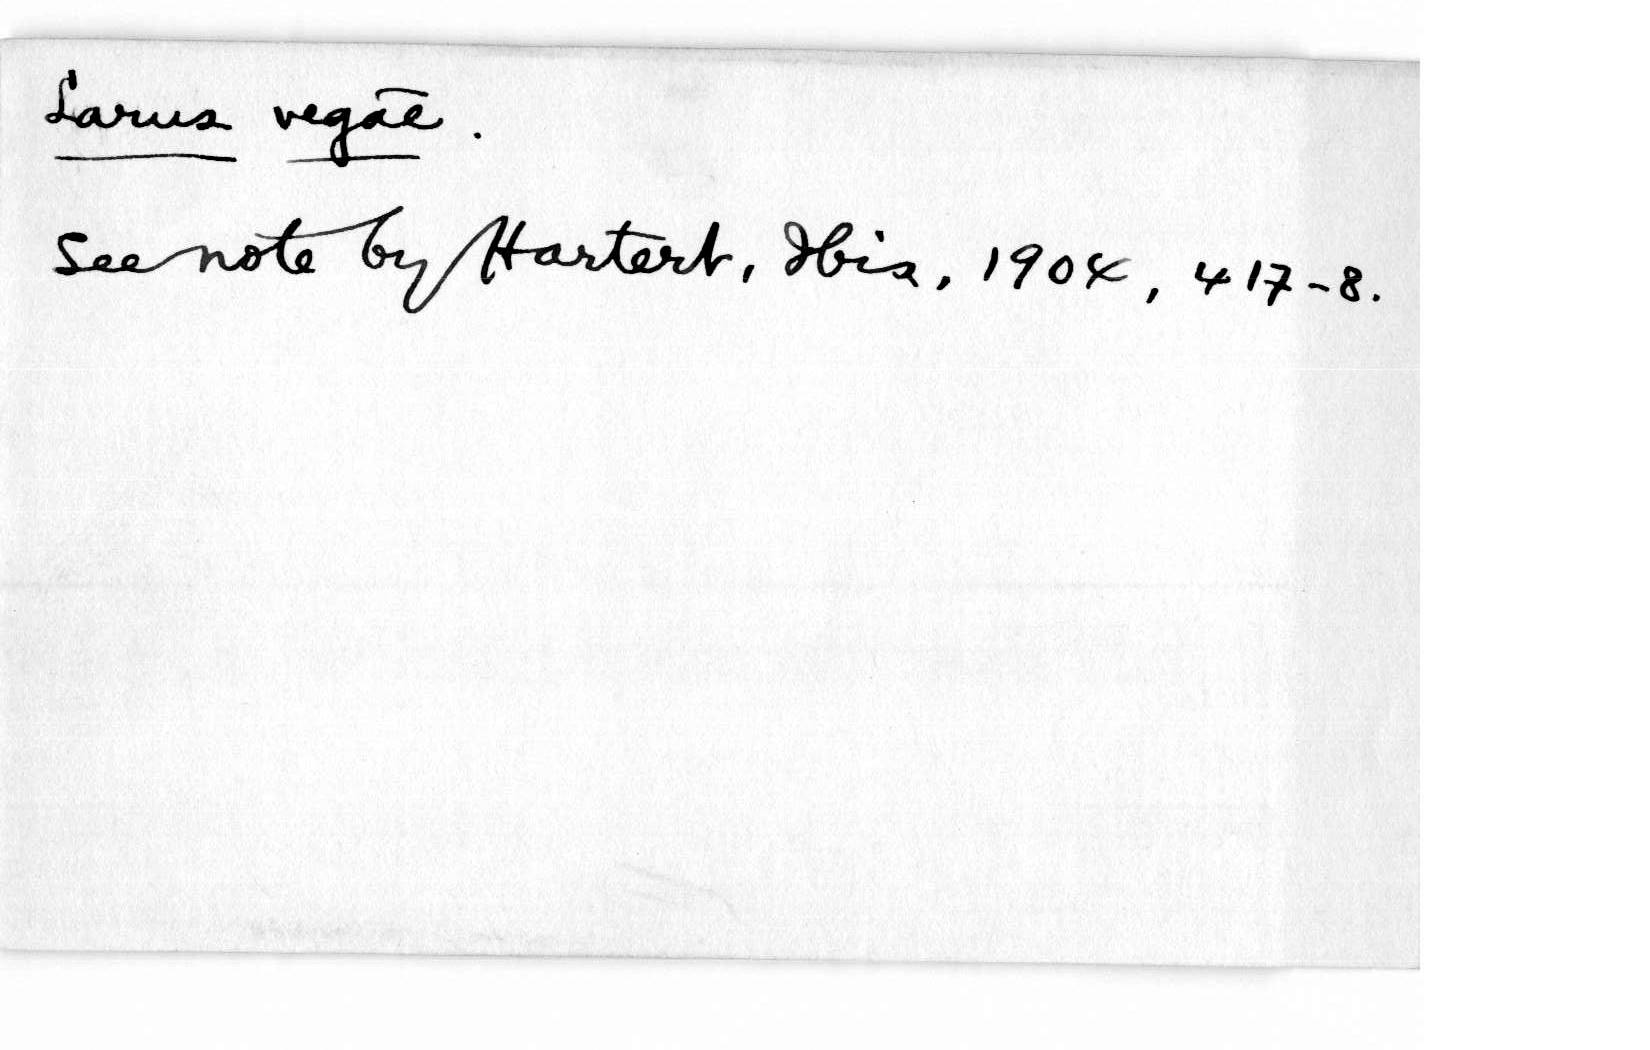 Larus vegae.
See note by Hartert, Ibis, 1904, 417-8.